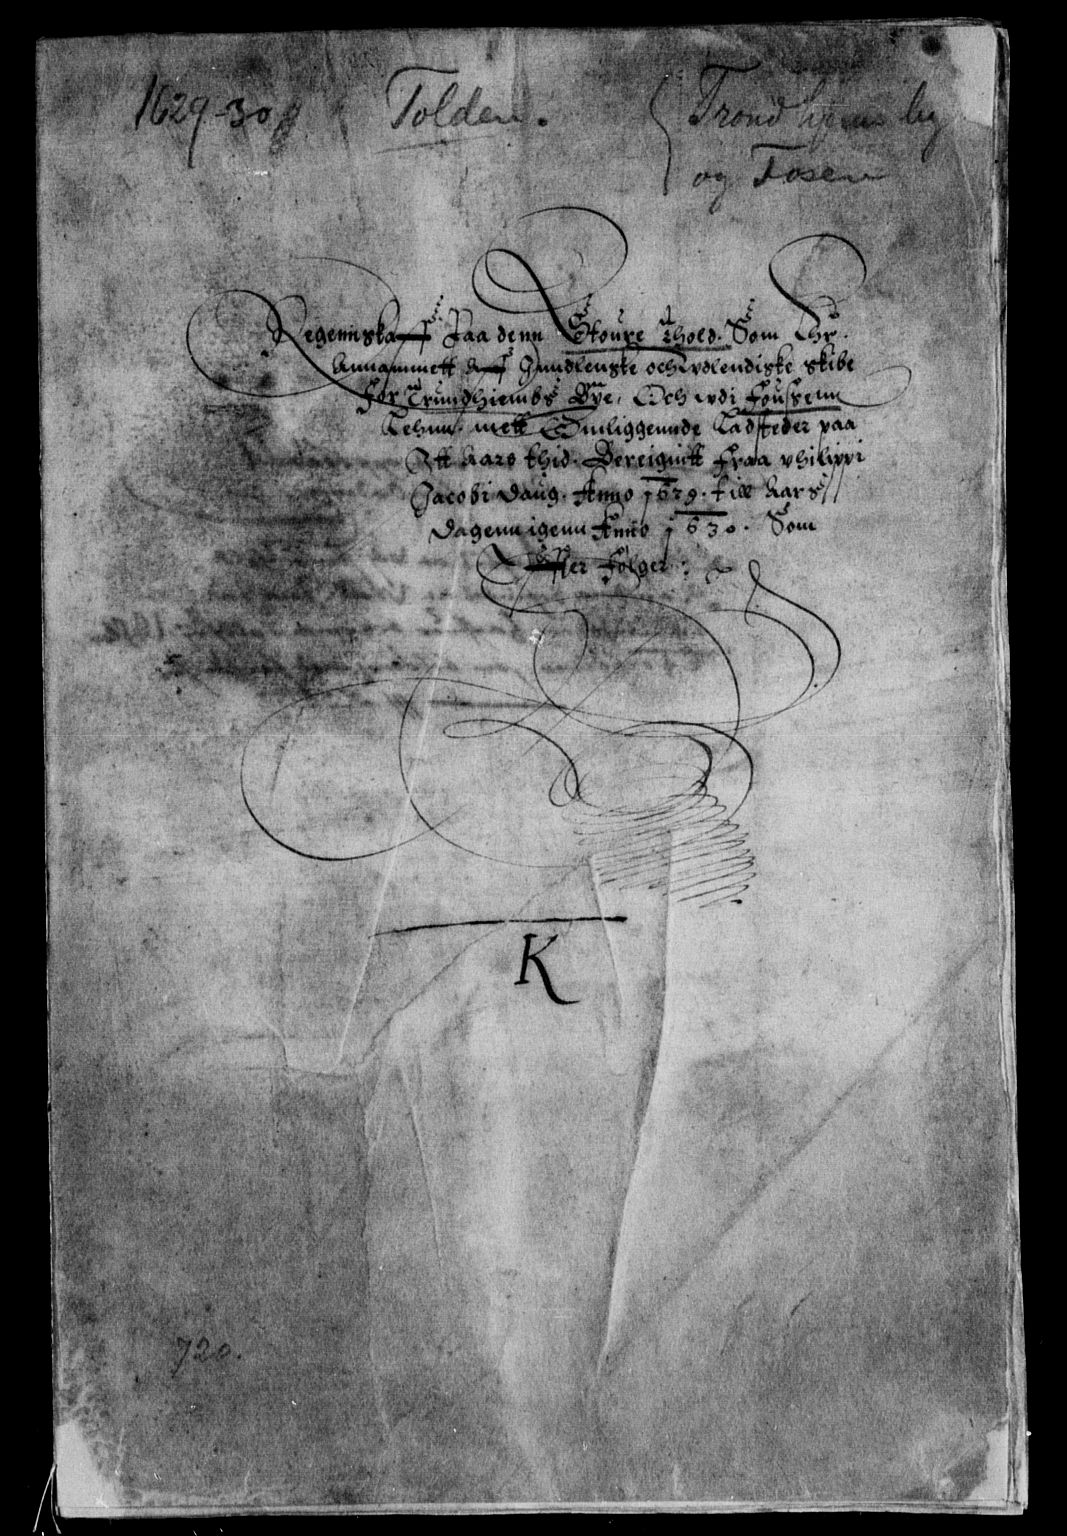 1629-30
Tolden.
Trondhjems by
og Fosen
Regennskaff Paa denn Stoure Thold. Som Ehr
Annammett Aff Inndlenske och Wdlendiske skibe
For Trundhiembs Bye, Och wdi Foussenn
Lehnn. mett Omliggennde Ladsteder paa
Itt Aars thid. Bereignitt Fraa philippi
Jacobi Daug. Anno 1629. till Aars
dagenn igenn Anno 1630. Som
Effter Følger:
K
720.